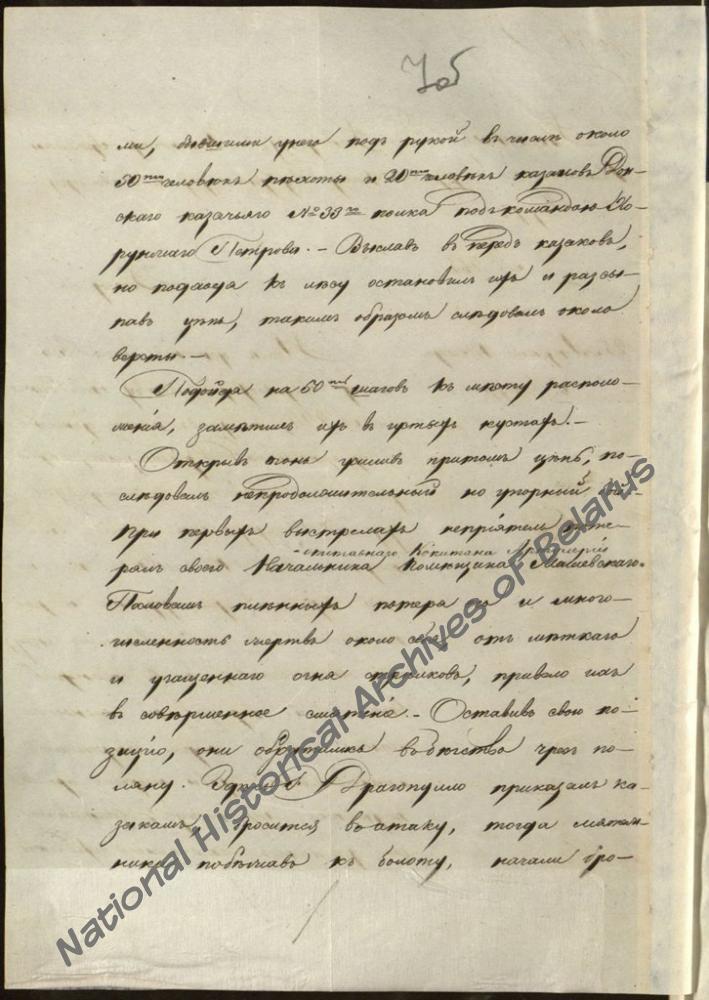 705
ми, бывшими у него подъ рукой въ числѣ около
50ти человѣкъ пѣхоты и 20ти человѣкъ казаковъ Дон-
скаго казачьяго № 33го полка подъ командою Хо-
рунжаго Петрова. — Выславъ въ передъ казаковъ,
но подходя къ лѣсу остановилъ ихъ и разсы-
павъ цѣпь, такимъ образомъ слѣдовалъ около
версты. —
Подойдя на 60ти шаговъ къ мѣсту располо-
женія, замѣтилъ ихъ въ густыхъ кустахъ. —
Открывъ огонь усиливъ притомъ цѣпь, по-
слѣдовалъ непродолжительный но упорный
При первыхъ выстрелахъ непріятель поте-
штатнаго Капитана Артилеріи
рялъ своего Начальника Помѣщика
Пословамъ плѣнныхъ потеря и много-
численность мертвъ около себя отъ мѣткаго
и учащеннаго огня стрѣлковъ, привело ихъ
въ совершенное смятѣніе. — Оставивъ свою по-
зицію, они обратились въ бѣгство чрезъ по-
ляну. Драгопуло приказалъ ка-
закамъ бросится въ атаку, тогда мятеж-
ники побѣжавъ къ болоту, начали бро-
National Historical Archives of Belarus